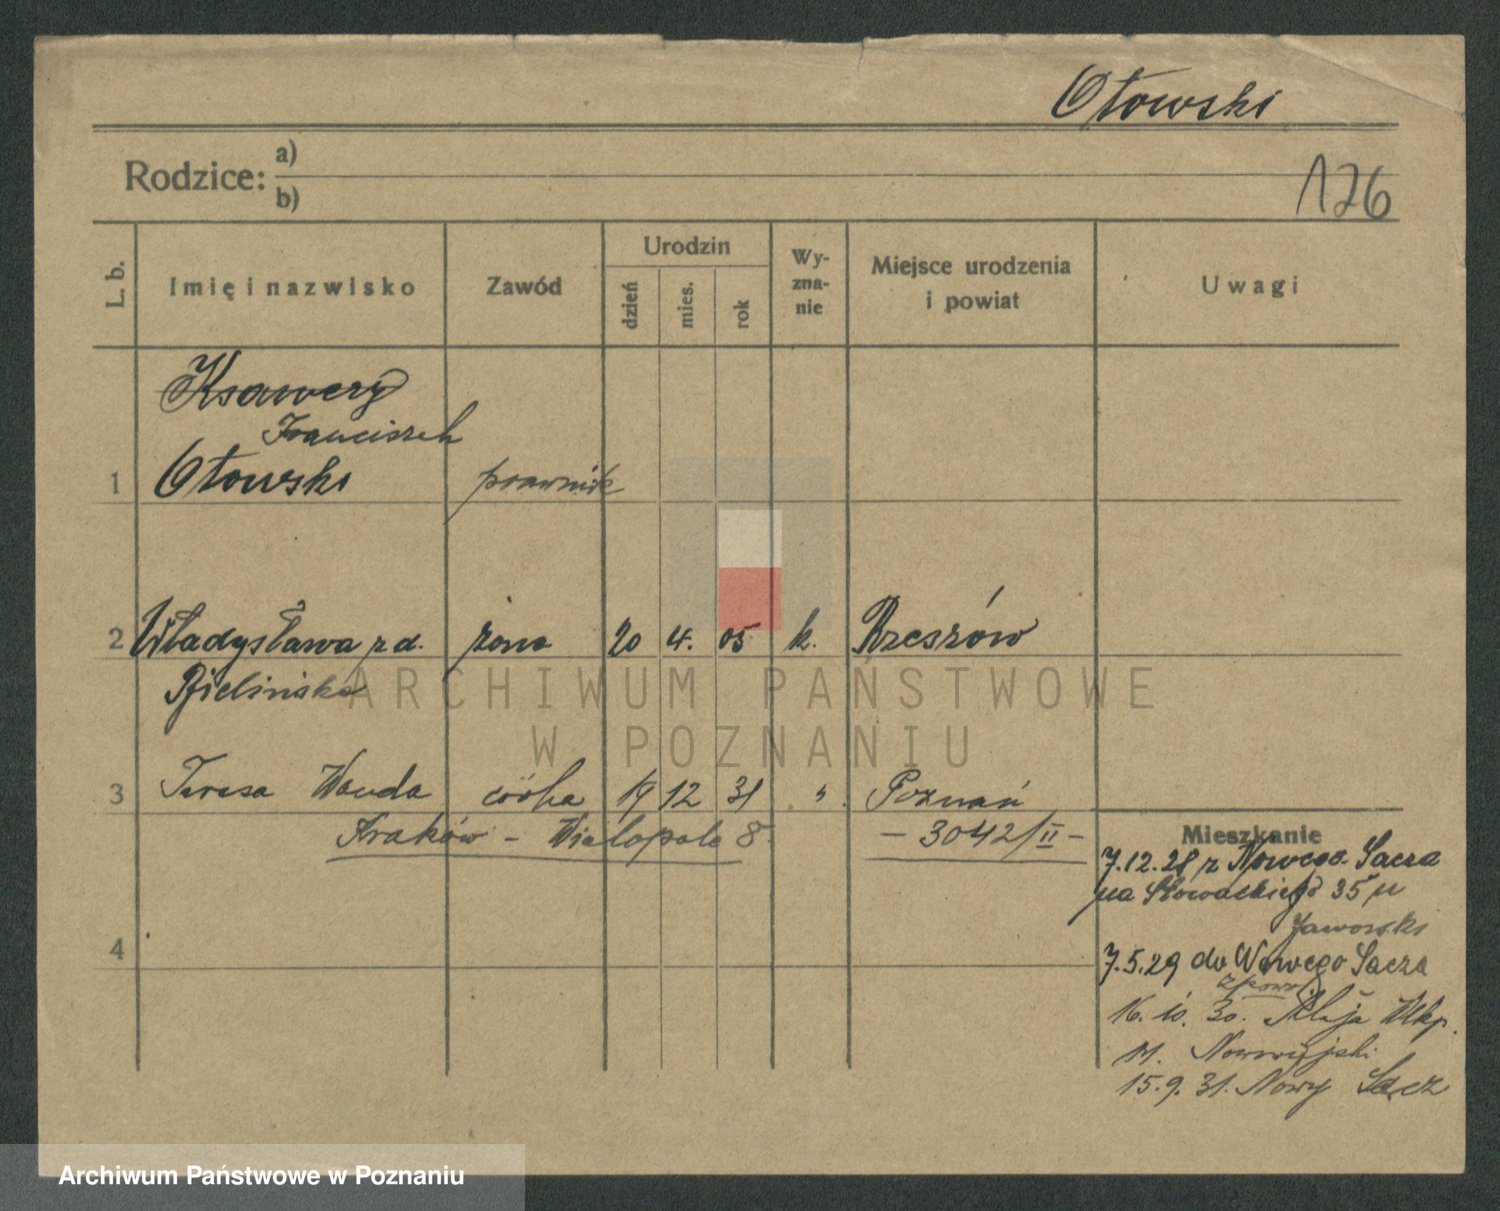 Otowski
Rodzice: a)
b)
176
L. b.
Imię i nazwisko
Zawód
Urodzin
dzień
mies.
rok
Wy-
zna-
nie
Miejsce urodzenia
i powiat
Uwagi
Ksawery
Franciszek
1 Otowski prawnik
2 Władysława z d. żona 20 4. 05 k. Rzeszów
Bielińska
ARCHIWUM PAŃSTWOWE
W POZNANIU
3 Teresa Wanda córka 19 12 31 " Poznań
Kraków - Wielopole 8 - 3042/II -
Mieszkanie
7.12.28 z Nowego Sącza
na Słowackiego 35 u
Jaworski
4
7.5.29 do Nowego Sącza
z pow.
16. 10. 30. Wlkp.
m.
15.9.31. Nowy Sącz
Archiwum Państwowe w Poznaniu